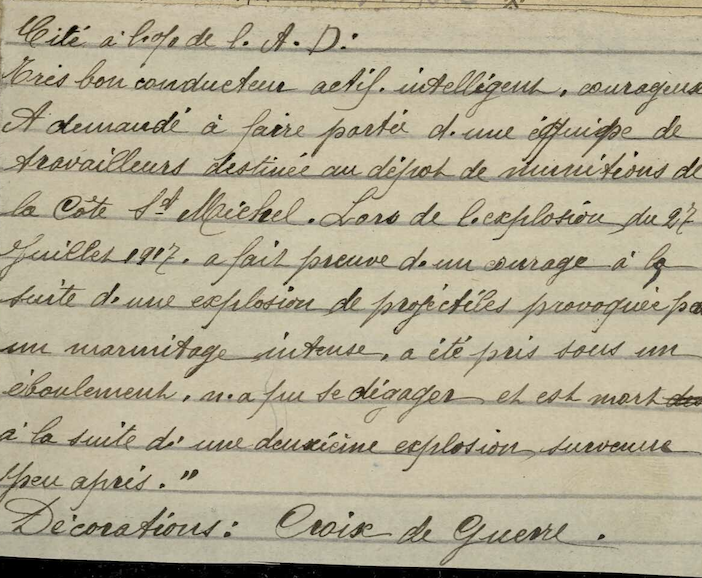 Cité à l'o/o de l. A. D:
Très bon conducteur actif. intelligent, courageux
A demandé à faire partie d. une équipe de
travailleurs destinée au dépot de munitions de
la Côte St Michel. Lors de l. explosion du 27
Juillet 1917. a fait preuve d. un courage à la
suite d. une explosion de projectiles provoquée pa
un marmitage intense, a été pris sous un
éboulement, n. a pu se dégager et est mort
à la suite d. une deuxième explosion survenue
peu après. "
Décorations: Croix de Guerre.